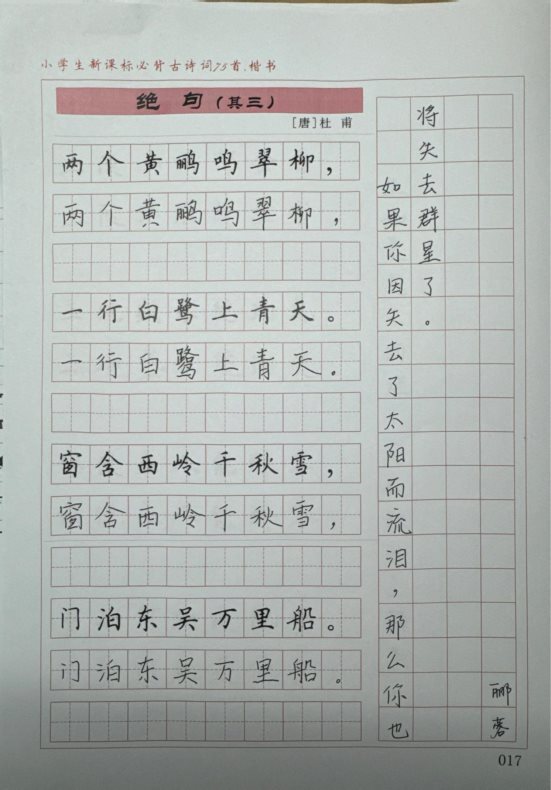 小学生新课标必背古诗词75首.楷书
绝句（其三）
［唐］杜 甫
两个黄鹂鸣翠柳，
两个黄鹂鸣翠柳，
一行白鹭上青天。
一行白鹭上青天。
窗含西岭千秋雪，
窗含西岭千秋雪，
门泊东吴万里船。
门泊东吴万里船。
如果你因失去了太阳而流泪，那么你也
将失去群星了。
郦
017